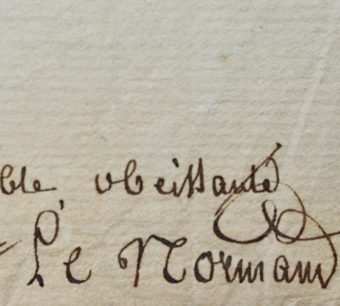 ble, obeissante
Le Normand